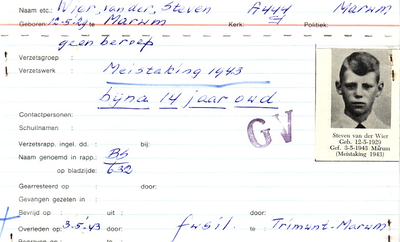 Naam etc.: Wier, van der, Steven A444 Marum
Geboren 12-5-29 te Marum Kerk: Politiek:
geen beroep
Verzetsgroep :
Verzetswerk : Meistaking 1943
bijna 14 jaar oud
Contactpersonen:
Schuilnamen :
GV
Steven van der Wier
Geb. 12-5-1929
Gef. 3-5-1943 Marum
(Meistaking 1943)
Verzetsrapp. ingel. dd. : bij:
Naam genoemd in rapp.: BS
op bladzijde: 632
Gearresteerd op : door:
Gevangen gezeten in :
Bevrijd op : uit : door:
Overleden op : 3-5-'43 door: fusil. te : Trimunt-Marum